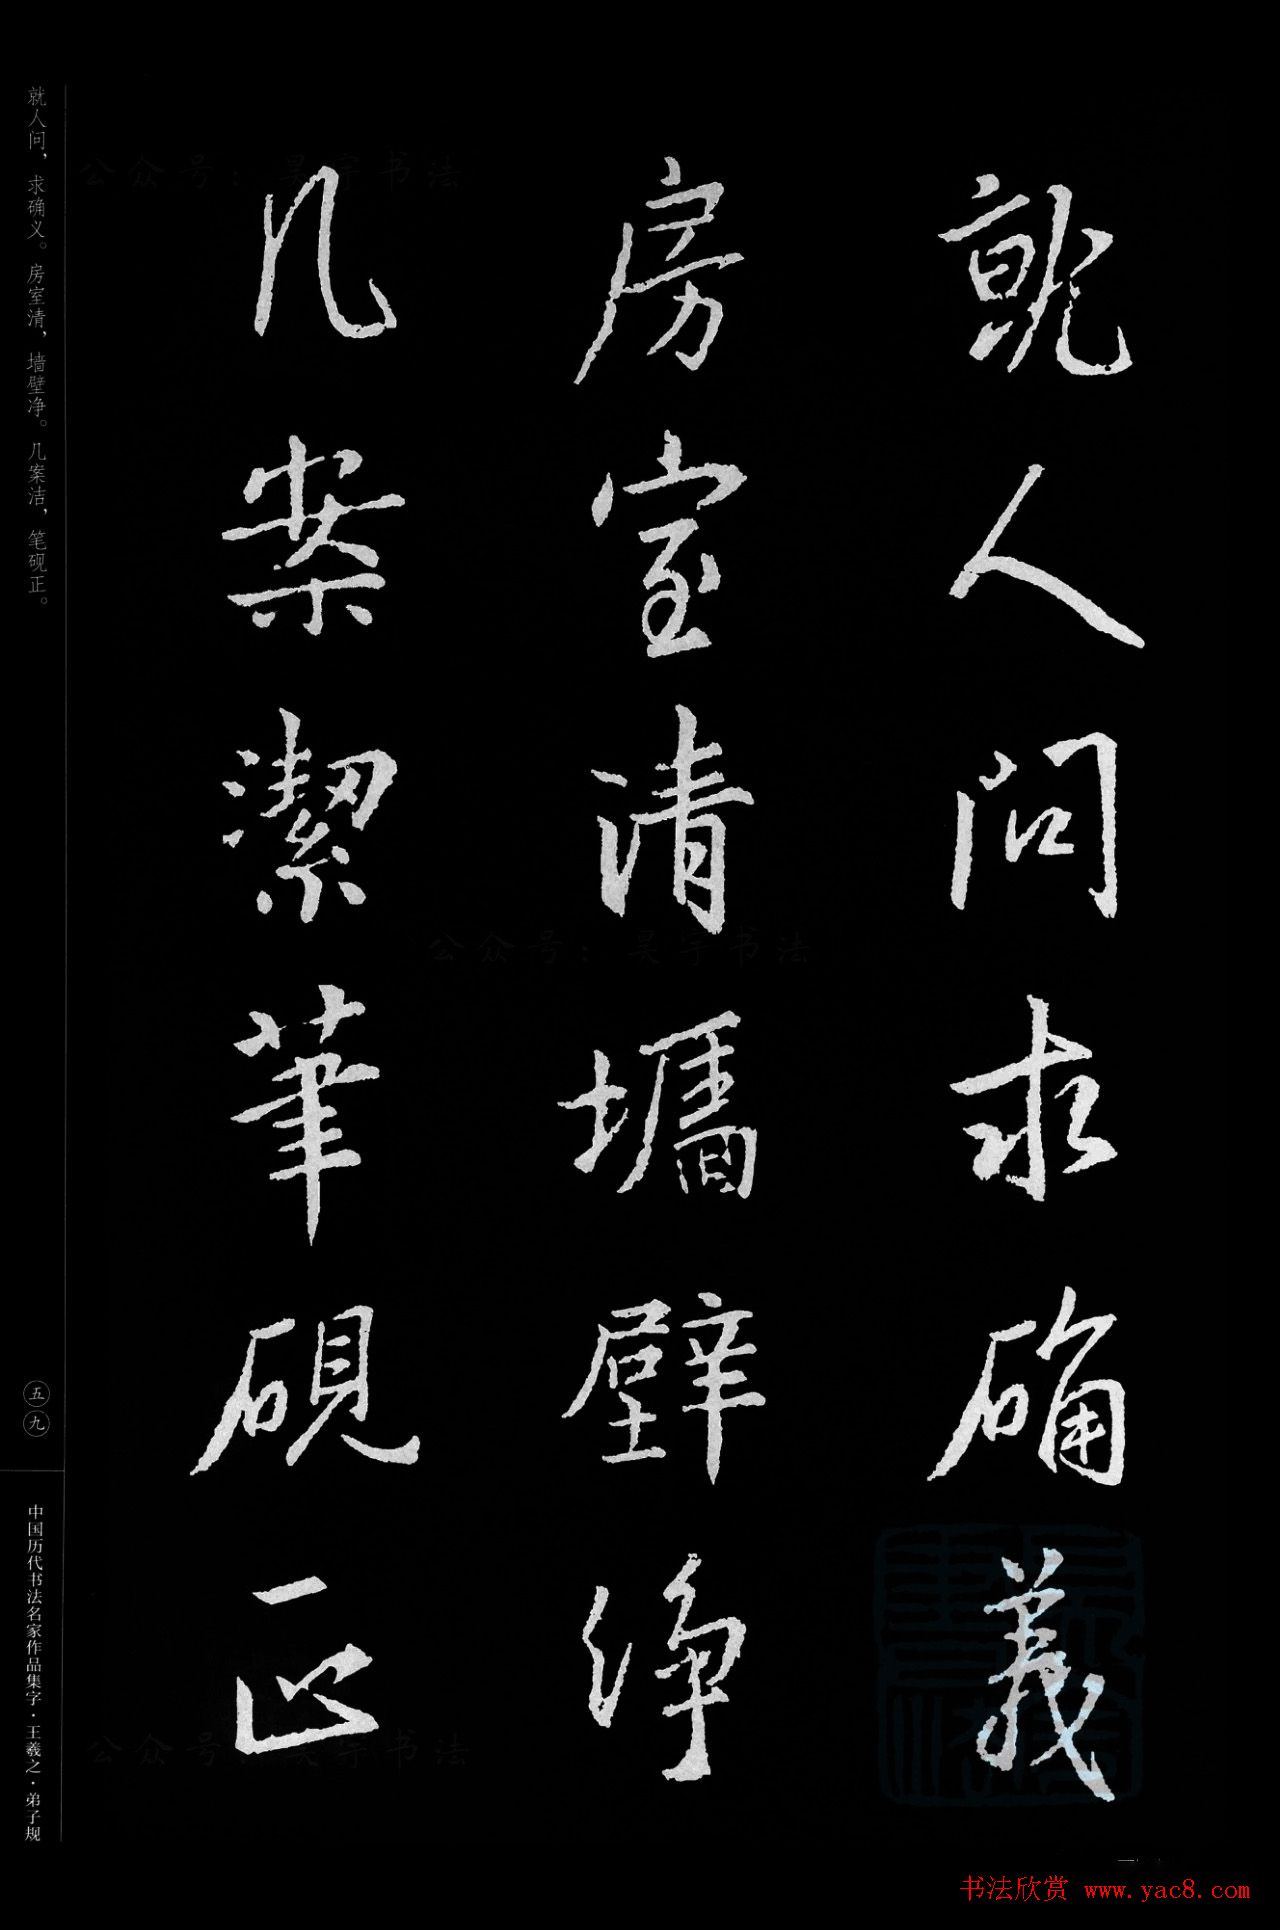 就人问求确義
房室清墻壁净
几案潔筆硯正
就人问，求确义。房室清，墙壁净。几案洁，笔砚正。
五九
中国历代书法名家作品集字·王羲之·弟子规
公众号：昊宇书法
公众号：昊宇书法
公众号：昊宇书法
书法欣赏 www.yac8.com